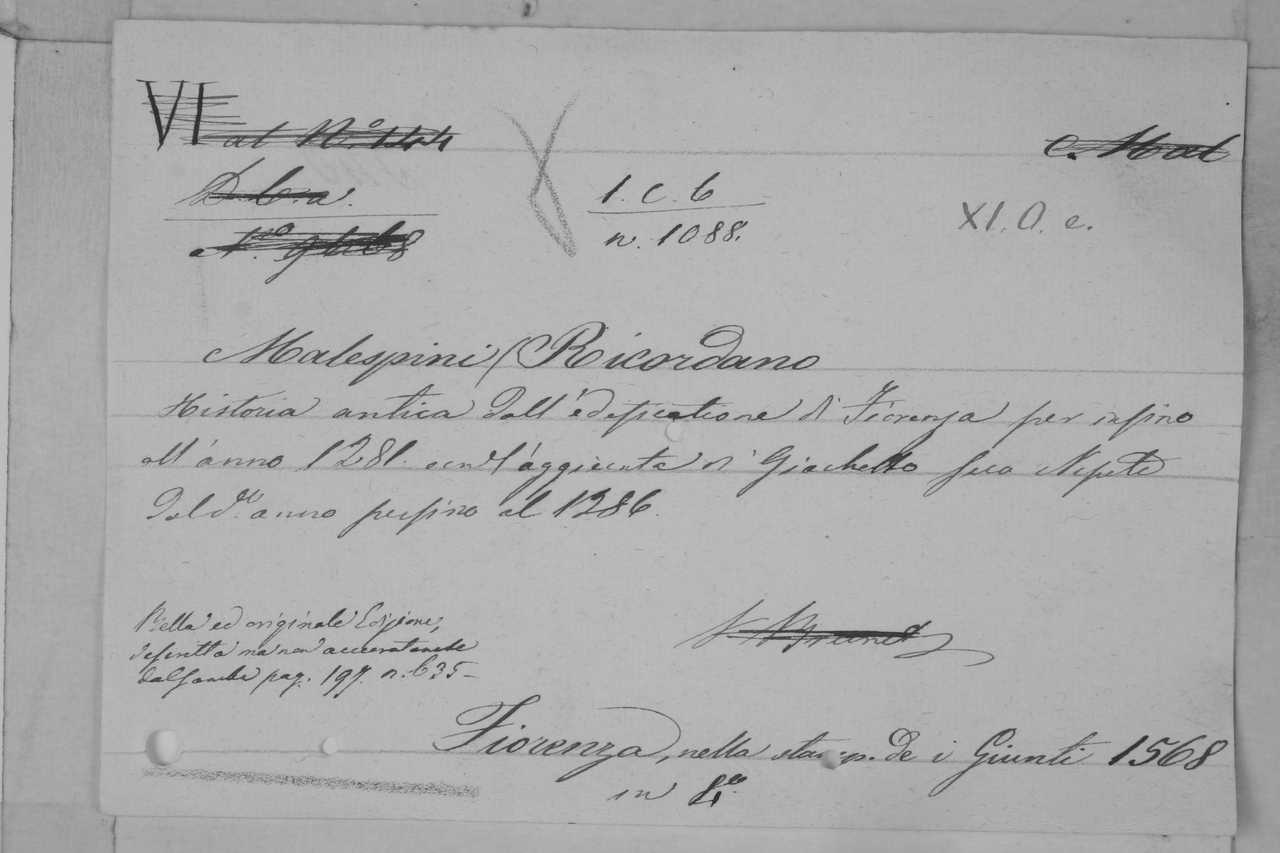 VI al N.º 144
C. Mal
D. b. a.
1. c. 6
N.º 9668
n. 1088.
XI. O. e.
Malespini (Ricordano
Historia antica dall'edificatione di Fiorenza per insino
all'anno 1281. con l'aggiunta di Giachetto suo Nipote
dal d.º anno persino al 1286.
Bella ed originale Edizione,
descritta ma non accuratamente
dal Gamba pag. 197. n. 635 -
V. Brunet
Fiorenza, nella stamp. de i Giunti 1568
in 4.º